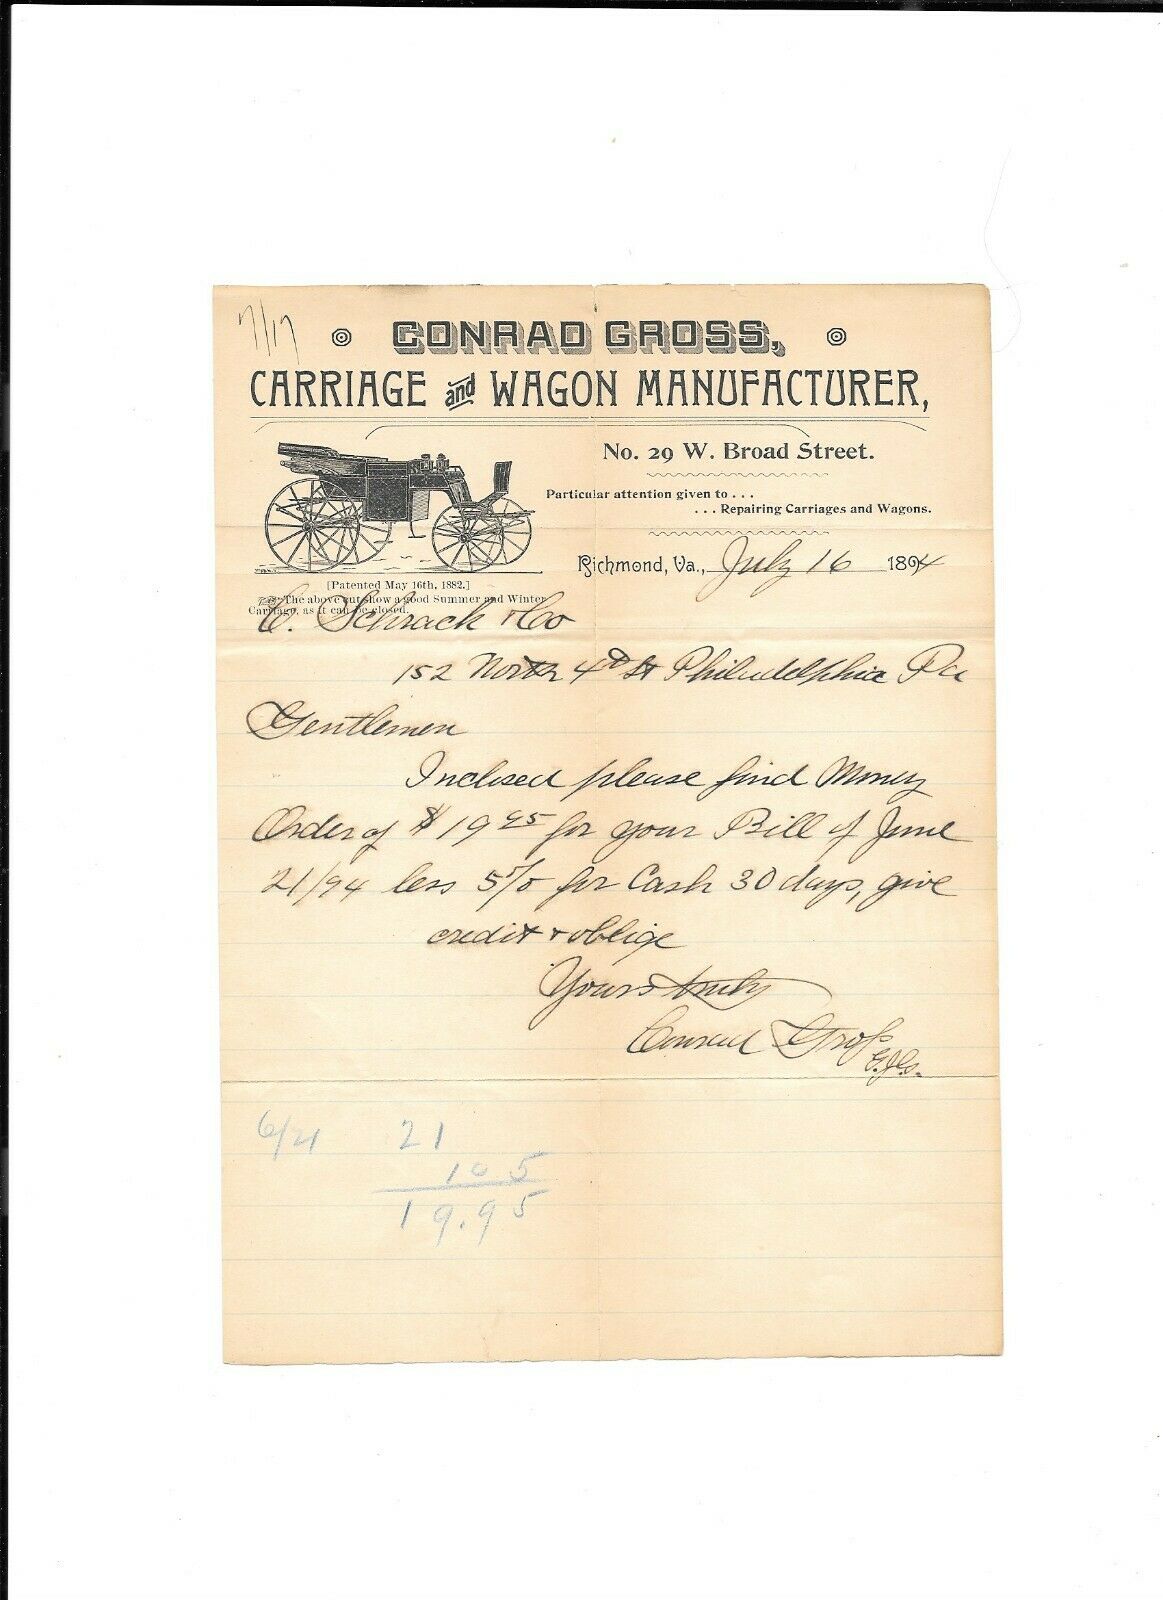 7/17
CONRAD GROSS,
CARRIAGE and WAGON MANUFACTURER,
No. 29 W. Broad Street.
Particular attention given to . . .
. . . Repairing Carriages and Wagons.
Richmond, Va., July 16 1894
[Patented May 16th, 1882.]
The above cut show a good Summer and Winter
Carriage, as it can be closed.
C. Schrack & Co
152 North 4th St Philadelphia Pa
Gentlemen
Inclosed please find Money
Order of $ 19 95 for your Bill of June
21/94 less 5% for Cash 30 days, give
credit & oblige
Yours truly
Conrad Gross
G.J.G.
6/21 21
105
19.95